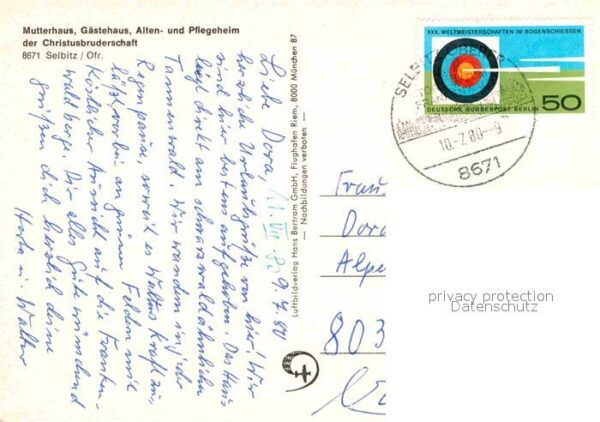 Mutterhaus, Gästehaus, Alten- und Pflegeheim
der Christusbruderschaft
8671 Selbitz / Ofr.
Liebe Dora, 9.7.80
herzliche Urlaubsgrüße von hier! Wir
sind hier bestens aufgehoben. Das Haus
liegt direkt am schwarzwaldähnlichen
Tannenwald. Wir wandern in jeder
Regenpause, soweit es Walters Kraft zu-
läßt, vorbei an grünen Feldern mit
köstlicher Aussicht auf die Franken-
waldberge. Dir alles Gute wünschend
grüßen dich herzlich deine
Herta u. Walter
Luftbildverlag Hans Bertram GmbH, Flughafen Riem, 8000 München 87
— Nachbildungen verboten —
XXX. WELTMEISTERSCHAFTEN IM BOGENSCHIESSEN
DEUTSCHE BUNDESPOST BERLIN 50
SELBITZ, OBERFR
10.-7.80-9
8671
Frau
Dora
Alpe
803
privacy protection
Datenschutz